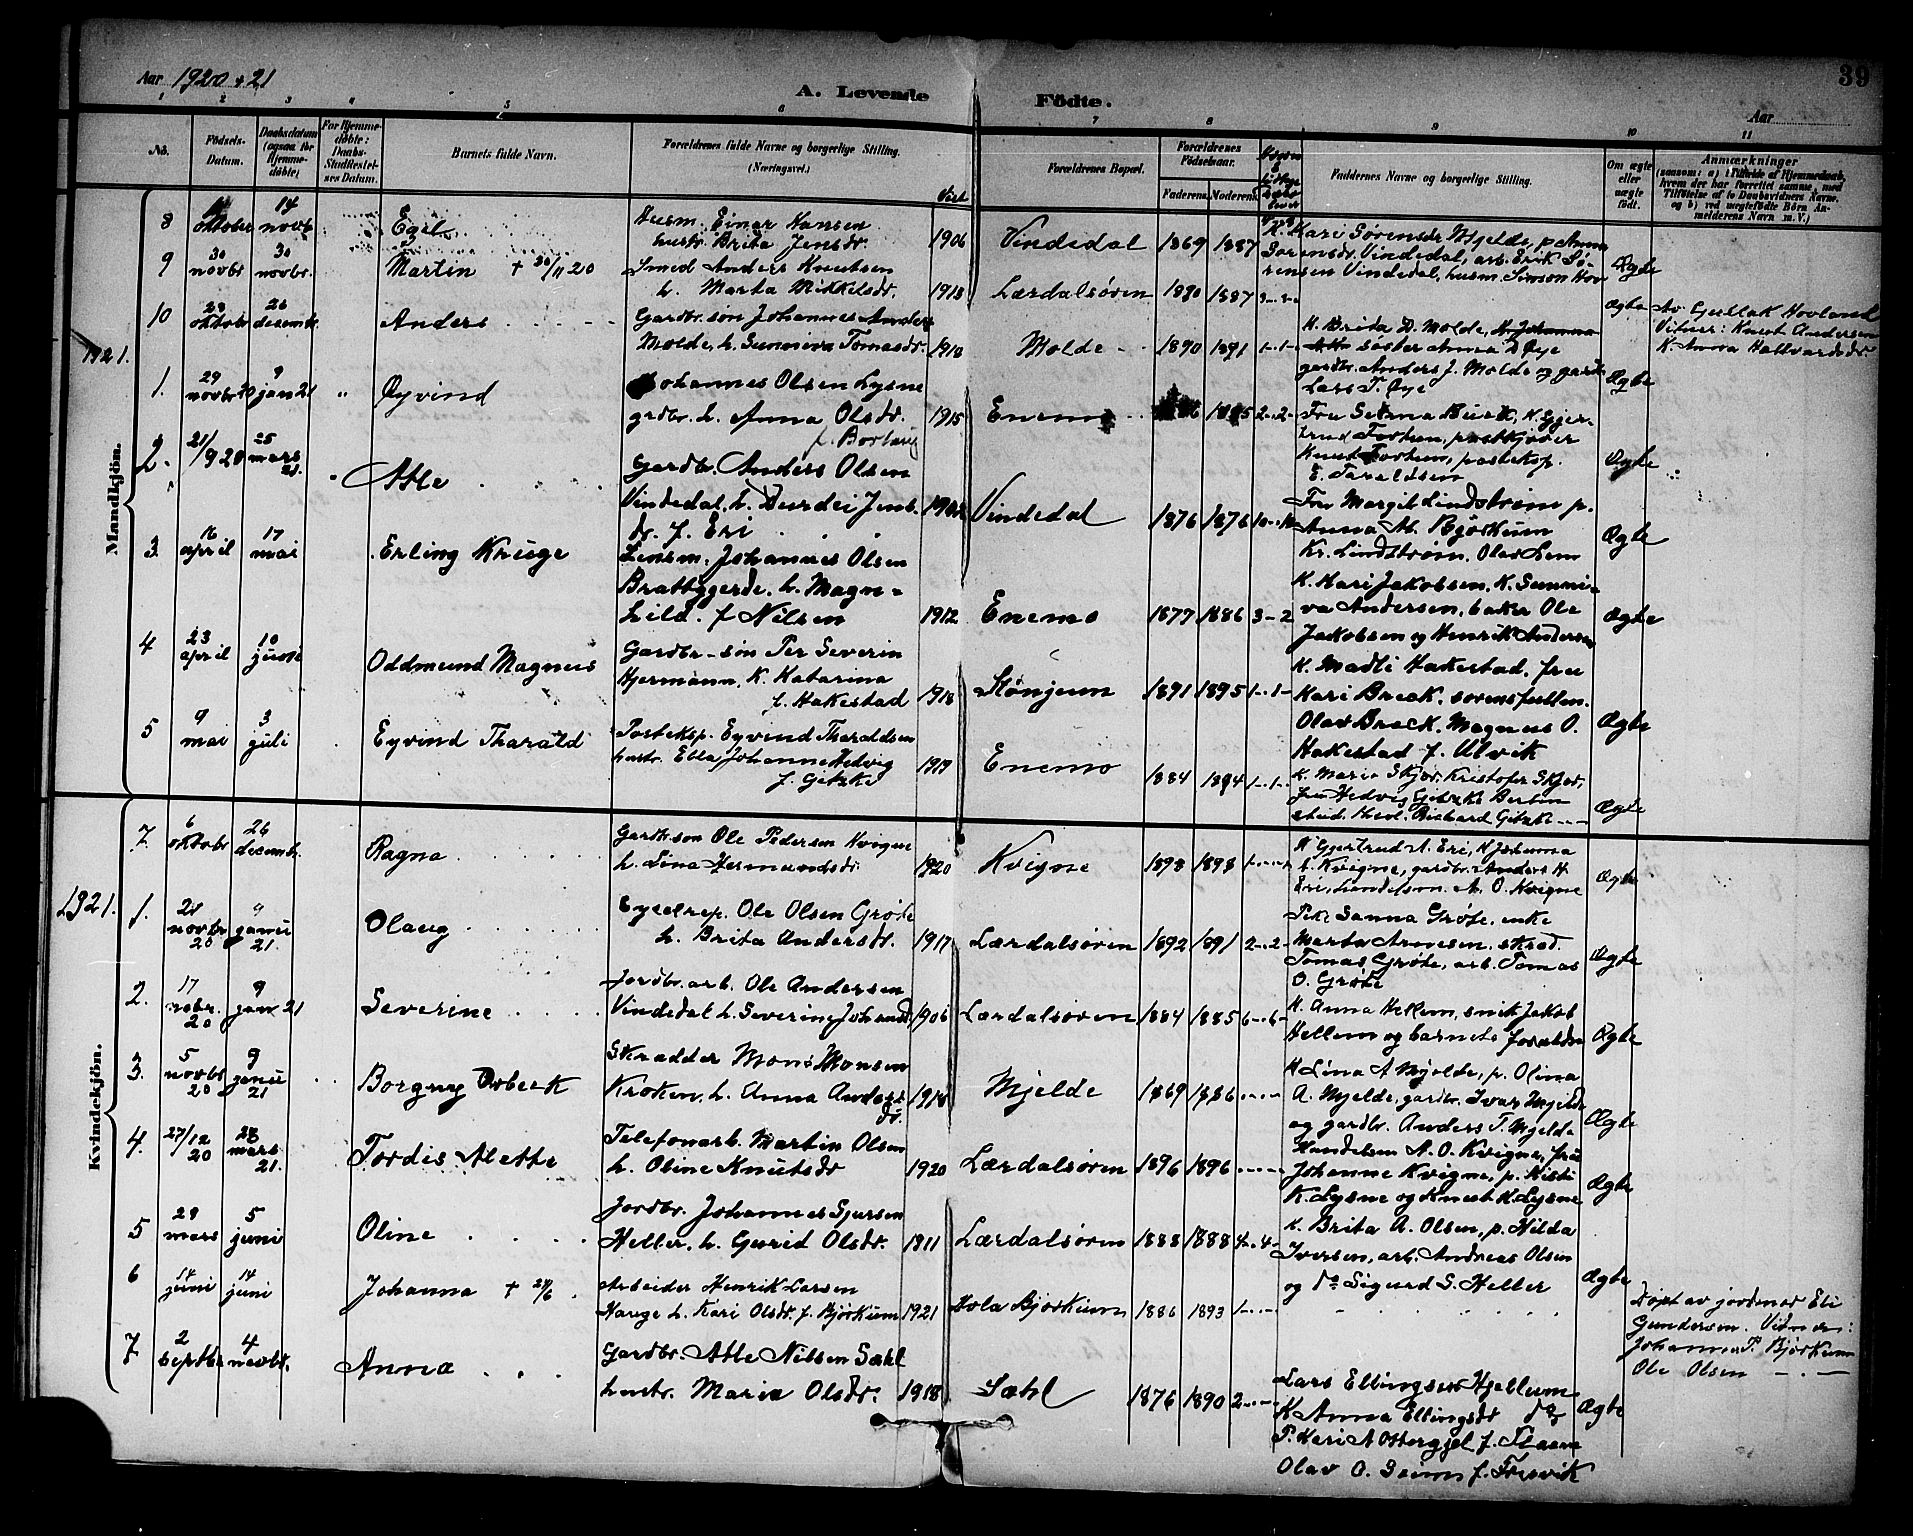 Aar 1920 + 21
39
A. Levende Födte.
Aar
1 2 3 4 5 6 7 8 9 10 11
No. Födsels-Datum. Daabsdatum (ogsaa for Hjemmedöbte) For Hjemmedöbte: Daabs-Stadfæstelses Datum. Barnets fulde Navn. Forældrenes fulde Navne og borgerlige Stilling. (Næringsvei.) Viet Forældrenes Bopæl. Forældrenes Födselsaar. Faderens. Moderens. Faddernes Navne og borgerlige Stilling. Om ægte eller uægte födt. Anmærkninger
Mandkjön.
8 oktober 14 novb. Egil Husm. Einar Hansen
hustr. Brita Jensdr. 1906 Vindedal 1869 1887 K. Kari Sørensdr Mjelde, p. Anna
Sorensdr. Vindedal, arb. Erik Sø-
rensen Vindedal, husm. Simon Hov Ægte
9 30 novbr 30 novbr. Martin + 30/11 20 Smed Anders Knutsen
h. Marta Mikkelsdr. 1913 Lærdalsøren 1880 1887 3 - 3 - Ægte Av Gullak Hovland
Vitner: Knut Andersen
K. Anna Hallvardsdr.
10 29 oktobr 26 desembr. Anders Gardbr. søn Johannes Anders
Molde, h. Sunniva Tomasdr. 1918 Molde 1890 1891 1 - 1 - K. Brita D. Molde,
søster Anna D Øye
gardbr. Anders J. Molde og gardbr
Lars T. Øye Ægte
1921.
1. 29 novbr 20 9 jan 21 " Øyvind Johannes Olsen Lysne
grdbr. h. Anna Olsdr.
f. Borlaug 1915 Enemo 1885 2 - 2 - Fru Selma Husk, K. Gjer-
trud Forthun, postkjører
Knut Forthun, posteksp.
E. Taraldsen Ægte
2. 21/9 20 25 mars 21. " Atle Gardbr. Anders Olsen
Vindedal, h. Durdei Jens.
dr. f. Eri Vindedal 1876 1876 10 - 10 Fru Margit Lindstrøm p.
Anna A. Bjørkum
Kr. Lindstrøm, Olav Lem Ægte
3. 16 april 17 mai Erling Kruge Lensm. Johannes Olsen
Brattegjerde, h. Magn-
hild. f Nilsen 1912 Enemo 1877 1886 3 - 2 K. Kari Jakobsen, K. Sunni-
va Andersen, baker Ole
Jakobsen og Henrik Andersen Ægte
4 23 april 10 juni Oddmund Magnus Gardbr - søn Per Severin
Hjermann, K. Katarina
f. Hakestad 1918 Stønjum 1891 1895 1 - 1 - K. Madli Hakestad, fru
Kari Breck, sorensfullm.
Olav Breck. Magnus O.
Hakestad f. Ulvik Ægte
5 9 mai 3 juli Eyvind Tharald Posteksp. Eyvind Tharaldsen
hustr. Ebba Johanne Hedvig
f. Getzke 1919 Enemo 1884 1894 1 - 1 - K. Maria Skjør, Kristofer Skjør,
fru Hedvig Getzke Berlin
stud. theol. Richard Getzke - - Ægte
Kvindekjön.
7. 6 oktobr 26 decembr. Ragna Gardbr. søn Ole Pedersen Kvigne
h. Lina Hermundsdr. 1920 Kvigne 1898 1898 K Gjertrud A. Eri, K Johanna
L. Kvigne, gardbr. Anders H.
Eri, handelsm. A. O. Kvigne Ægte
1921.
1. 21 novbr 20 9 janu 21. Olaug Cyselrep. Ole Olsen Grøte
h. Brita Andersdr. 1917 Lærdalsøren 1892 1891 2 - 2 - Pike Sanna Grøte, enke
Marta Arnesen, skræd.
Tomas Grøte, arb. Tomas
O. Grøte Ægte
2. 17 nobr. 20 9 jan 21 Severine Jordbr. arb. Ole Andersen
Vindedal h. Severine Johansdr 1906 Lærdalsøren 1884 1885 6 - 6 - K. Anna Hellem, smik Jakob
Hellem og barnets forældre Ægte
3. 5 novbr 20 9 janu 21 Borgny Orbeck Skrædder Mons Monsen
Kroken, h. Anna Anders
dr. 1918 Mjelde 1869 1886 K Lina A Mjelde, p. Olina
A. Mjelde, gardbr. Ivar Mjelde
og gardbr. Anders T. Mjelde Ægte
4. 27/12 20 28 mars 21. Tordis Alette Telefonarb. Martin Olsen
h. Oline Knutsdr 1920 Lærdalsøren 1896 1896 Handelsm A. O. Kvigne, fru
Johanne Kvigne, p. Kisti
K. Lysne og Knut K Lysne Ægte
5 29 mars 5 juni Oline Jordbr. Johannes Sjursen
Heller, h. Gurid Olsdr. 1911 Lærdalsøren 1888 1888 4 - 4 - K. Brita A. Olsen, p. Hilda
Iversen, arb. Andreas Olsen
og do Sigurd S. Heller Ægte
6 14 juni 14 juni Johanna + 24/6 Arbeider Henrik Larsen
Hauge h. Kari Olsdr. f. Bjørkum 1921 Hola Bjørkum 1886 1893 1 Døpt av jordmor Eli
Gundersen. Vidner:
Johanna P. Bjørkum
Ole Olsen
7 2 septbr 4 novbr. Anna Gardbr. Atle Nilsen Sæhl
hustr. Maria Olsdr. 1918 Sæhl 1876 1890 2 Lars Ellingsen Hjellum
K Anna Ellingsdr do
P. Kari A Ottergjel f.
Olav O. Seim f. Fresvik Ægte